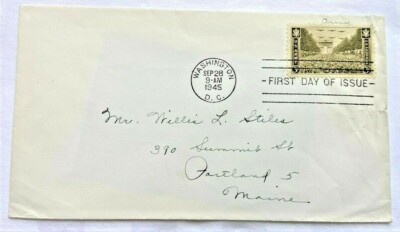 Army
WASHINGTON
SEP 28
9-AM
1945
D. C.
- FIRST DAY OF ISSUE -
Mr. Willis L. Stiles
390 Summit St
Portland 5
Maine